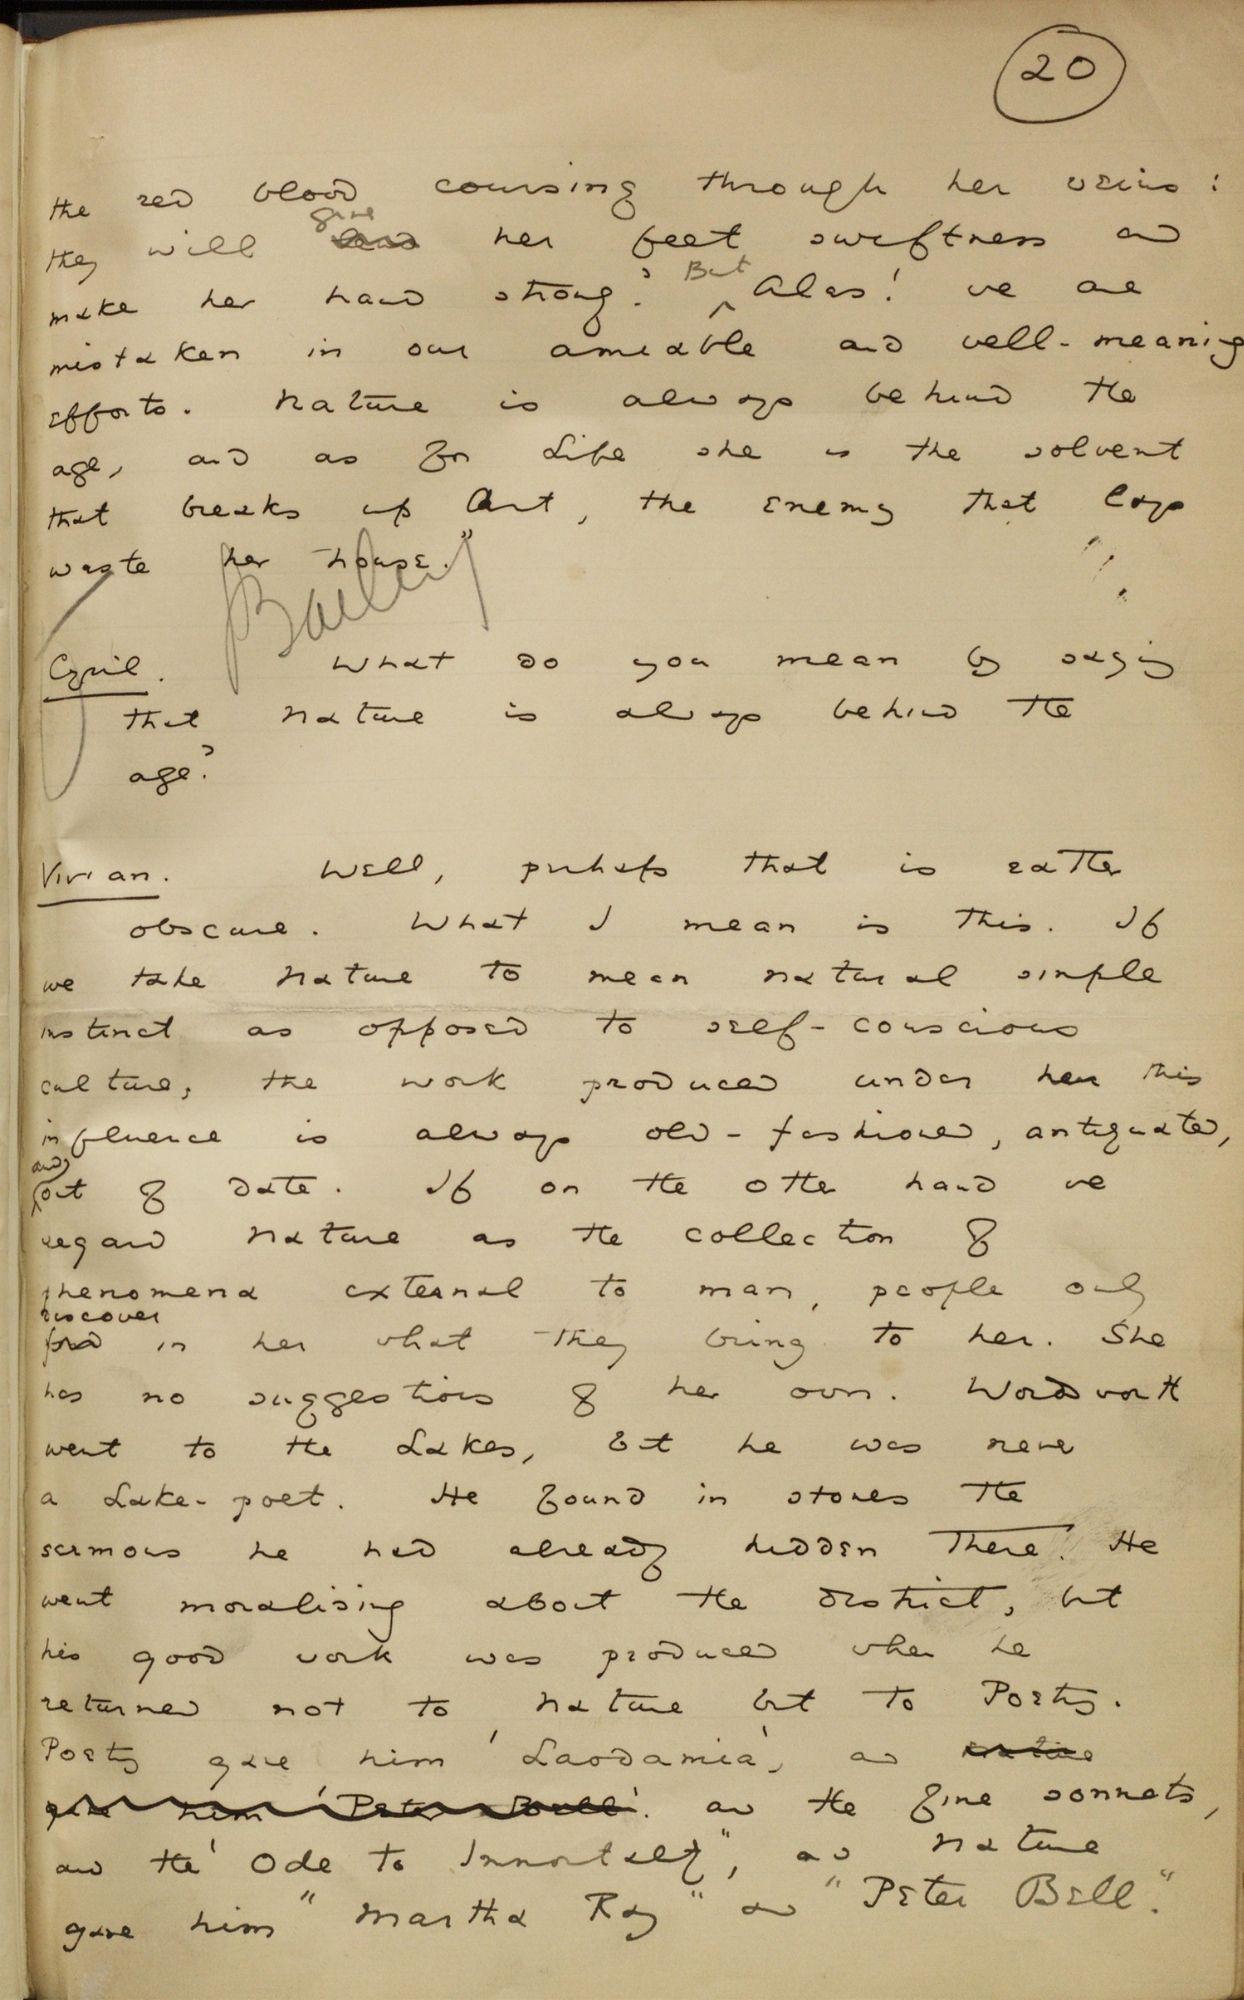 20
the red blood coursing through her veins:
they will give lend her feet swiftness and
make her hand strong? But Alas! we are
mistaken in our amiable and well-meaning
efforts. Nature is always behind the
age, and as for Life she is the solvent
that breaks up Art, the enemy that lays
waste her house."
Bailey
Cyril. What do you mean by saying
that Nature is always behind the
age?
Vivian. Well, perhaps that is rather
obscure. What I mean is this. If
we take Nature to mean natural simple
instinct as opposed to self-conscious
culture, the work produced under her this
influence is always old-fashioned, antiquated,
and out of date. If on the other hand we
regard Nature as the collection of
phenomena external to man, people only
discover
find in her what they bring to her. She
has no suggestions of her own. Wordsworth
went to the Lakes, but he was never
a Lake-poet. He found in stones the
sermons he had already hidden there. He
went moralising about the district, but
his good work was produced when he
returned not to Nature but to Poetry.
Poetry gave him 'Laodamia', and Nature
gave him 'Peter Bell'. and the fine sonnets,
and the 'Ode to Immortality", and Nature
gave him "Martha Ray" and "Peter Bell."